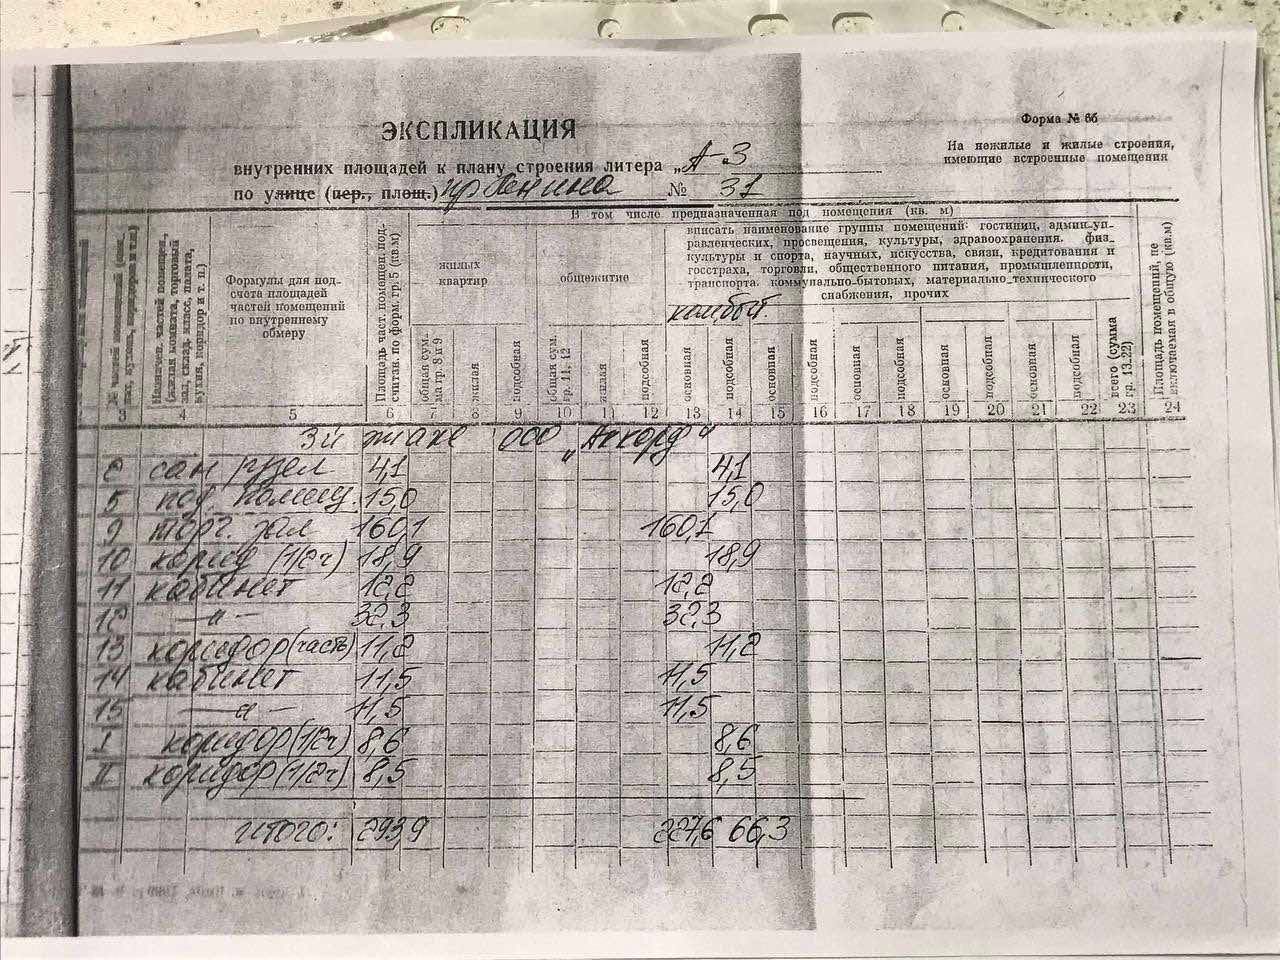 Форма № 6б
ЭКСПЛИКАЦИЯ
На нежилые и жилые строения,
имеющие встроенные помещения
внутренних площадей к плану строения литера „А-3
по улице (пер., площ.) пр Ленина № 31
В том числе предназначенная под помещения (кв. м)
вписать наименование группы помещений: гостиниц, админ-уп-
равленческих, просвещения, культуры, здравоохранения, физ-
культуры и спорта, научных, искусства, связи, кредитования и
госстраха, торговли, общественного питания, промышленности,
транспорта, коммунально-бытовых, материально-технического
снабжения, прочих
жилых
квартир
общежитие
комбыт.
Формулы для под-
счета площадей
частей помещений
по внутреннему
обмеру
Площадь част. помещен. под-
считан. по форм. гр. 5 (кв.м)
общая сум.
ма гр. 8 и 9
жилая
подсобная
общая сум.
гр. 11, 12
жилая
подсобная
основная
подсобная
основная
подсобная
основная
подсобная
основная
подсобная
основная
подсобная
всего (сумма
гр. 13-22)
Площадь помещений, не
включаемая в общую (кв.м)
3 4 5 6 7 8 9 10 11 12 13 14 15 16 17 18 19 20 21 22 23 24
3й этаж ООО „Аккорд"
2 сан/узел 4,1 4,1
5 под. помещ. 15,0 15,0
9 торг. зал 160,1 160,1
10 корид (1/2ч) 18,9 18,9
11 кабинет 12,2 12,2
12 —"— 32,3 32,3
13 коридор (часть) 11,2 11,2
14 кабинет 11,5 11,5
15 —"— 11,5 11,5
I коридор (1/2ч) 8,6 8,6
II коридор (1/2ч) 8,5 8,5
Итого: 293,9 227,6 66,3